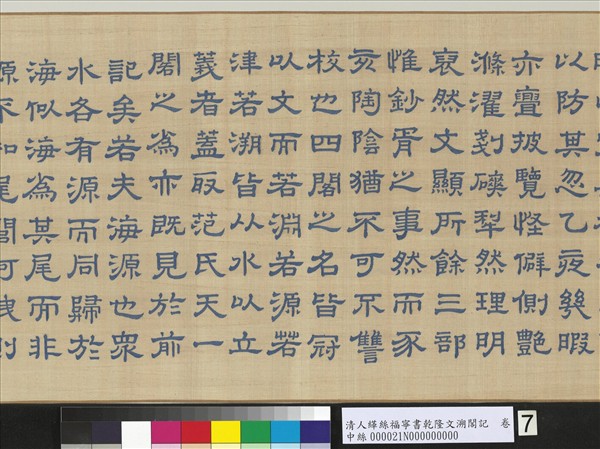 以防其忽乙夜幾暇
亦亹披覽怪僻側艷
滌濯剗磢犁然理明
裒然文顯所餘三部
惟鈔胥之事然而豕
亥陶陰猶不可不讐
校也四閣之名皆冠
以文而若淵若源若
津若溯皆从水以立
義者蓋取范氏天一
閣之為亦既見於前
記矣若夫海源也眾
水各有源而同歸於
海似海為其尾而非
源不知尾閭何洩則
清人緙絲福寧書乾隆文溯閣記 卷
中絲 000021N000000000
7